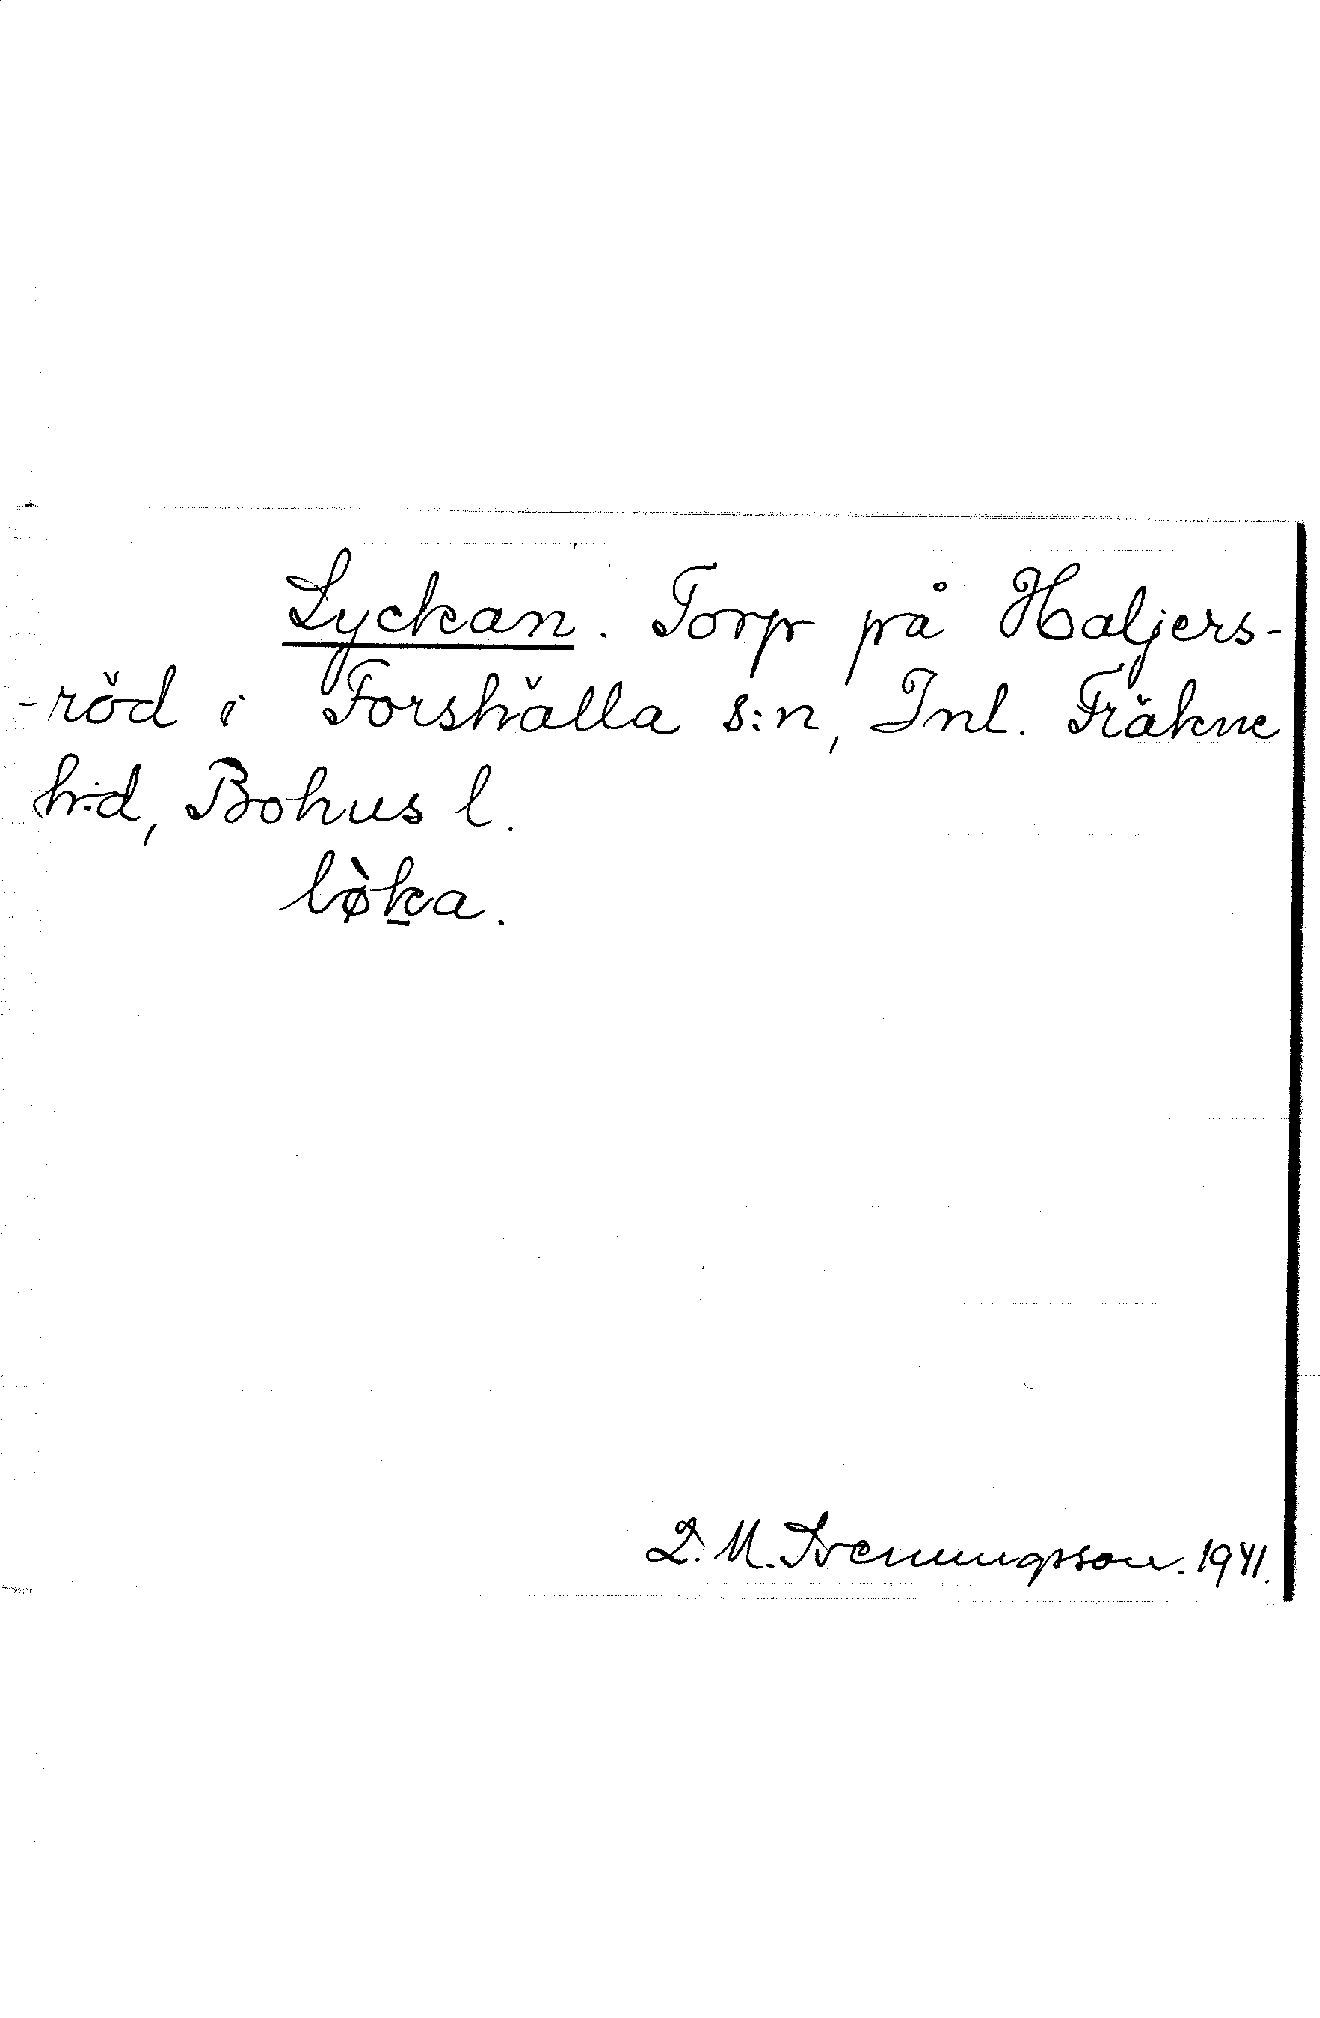 Lyckan. Torp på Haljers-
-röd i Forshälla s:n, Inl. Fräkne
h:d, Bohus l.
lø̀ḵa.
D. M. Svenungsson. 1941.